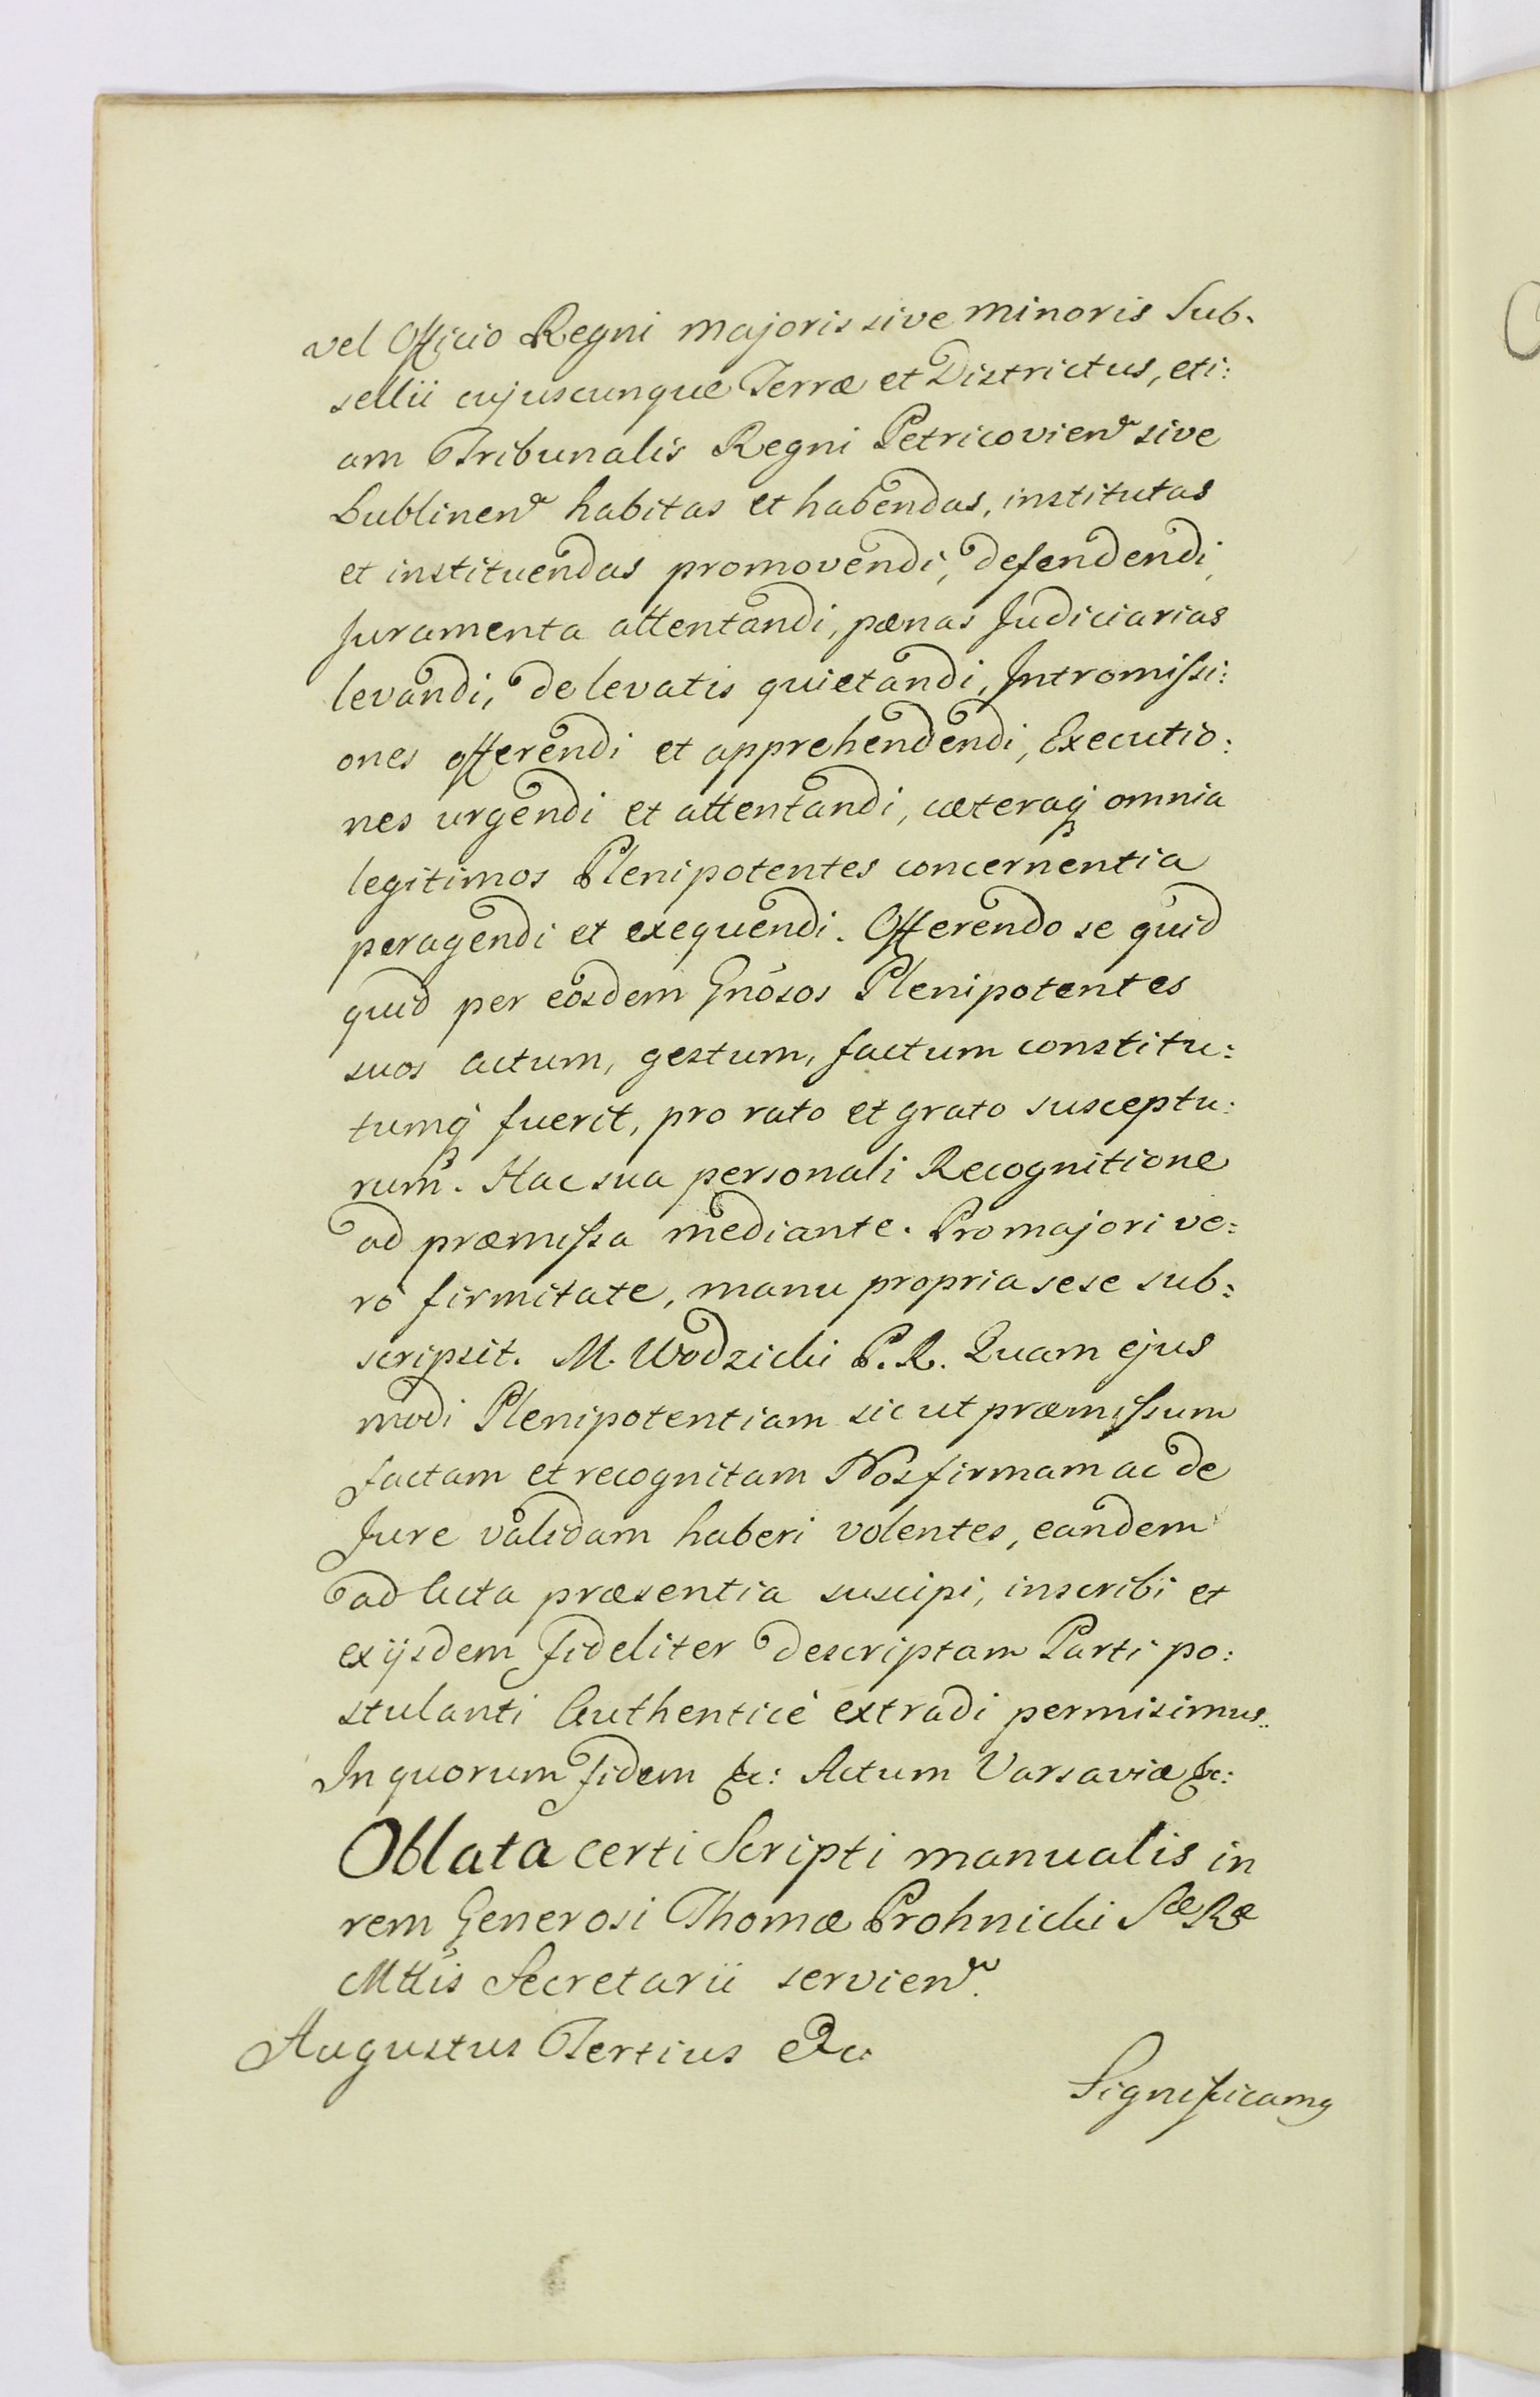 vel Officio Regni majoris sive minoris Sub-
sellii cujuscunque Terræ et Districtus, eti:
am Tribunalis Regni Petricovien sive
Lublinen habitas et habendas, institutas
et instituendas promovendi, defendendi,
Juramenta attentandi, pænas Judiciarias
levandi, de levatis quietandi, Intromiſsi:
ones offerendi et apprehendendi, Executio:
nes urgendi et attentandi, cæteraq́ omnia
legitimos Plenipotentes concernentia
peragendi et exequendi. Offerendo se quid
quid per eosdem Gnösos Plenipotentes
suos actum, gestum, factum constitu:
tumq́ fuerit, pro rato et grato susceptu:
rum. Hac sua personali Recognitione
ad præmiſsa mediante. Pro majori ve:
ro firmitate, manu propria sese sub:
scripsit. M. Wodzicki P. R. Quam ejus
modi Plenipotentiam sic ut præmiſsum
factam et recognitam Nos firmam ac de
Jure validam haberi volentes, eandem
ad Acta præsentia suscipi, inscribi et
ex ijsdem fideliter descriptam Parti po:
stulanti Authenticè extradi permisimus.
In quorum fidem &c: Actum Varsaviæ &c:
Oblata certi Scripti manualis in
rem Generosi Thomæ Prohnicki Sæ Ræ
Mttis Secretarii servien.
Augustus Tertius &c
Significamꝰ